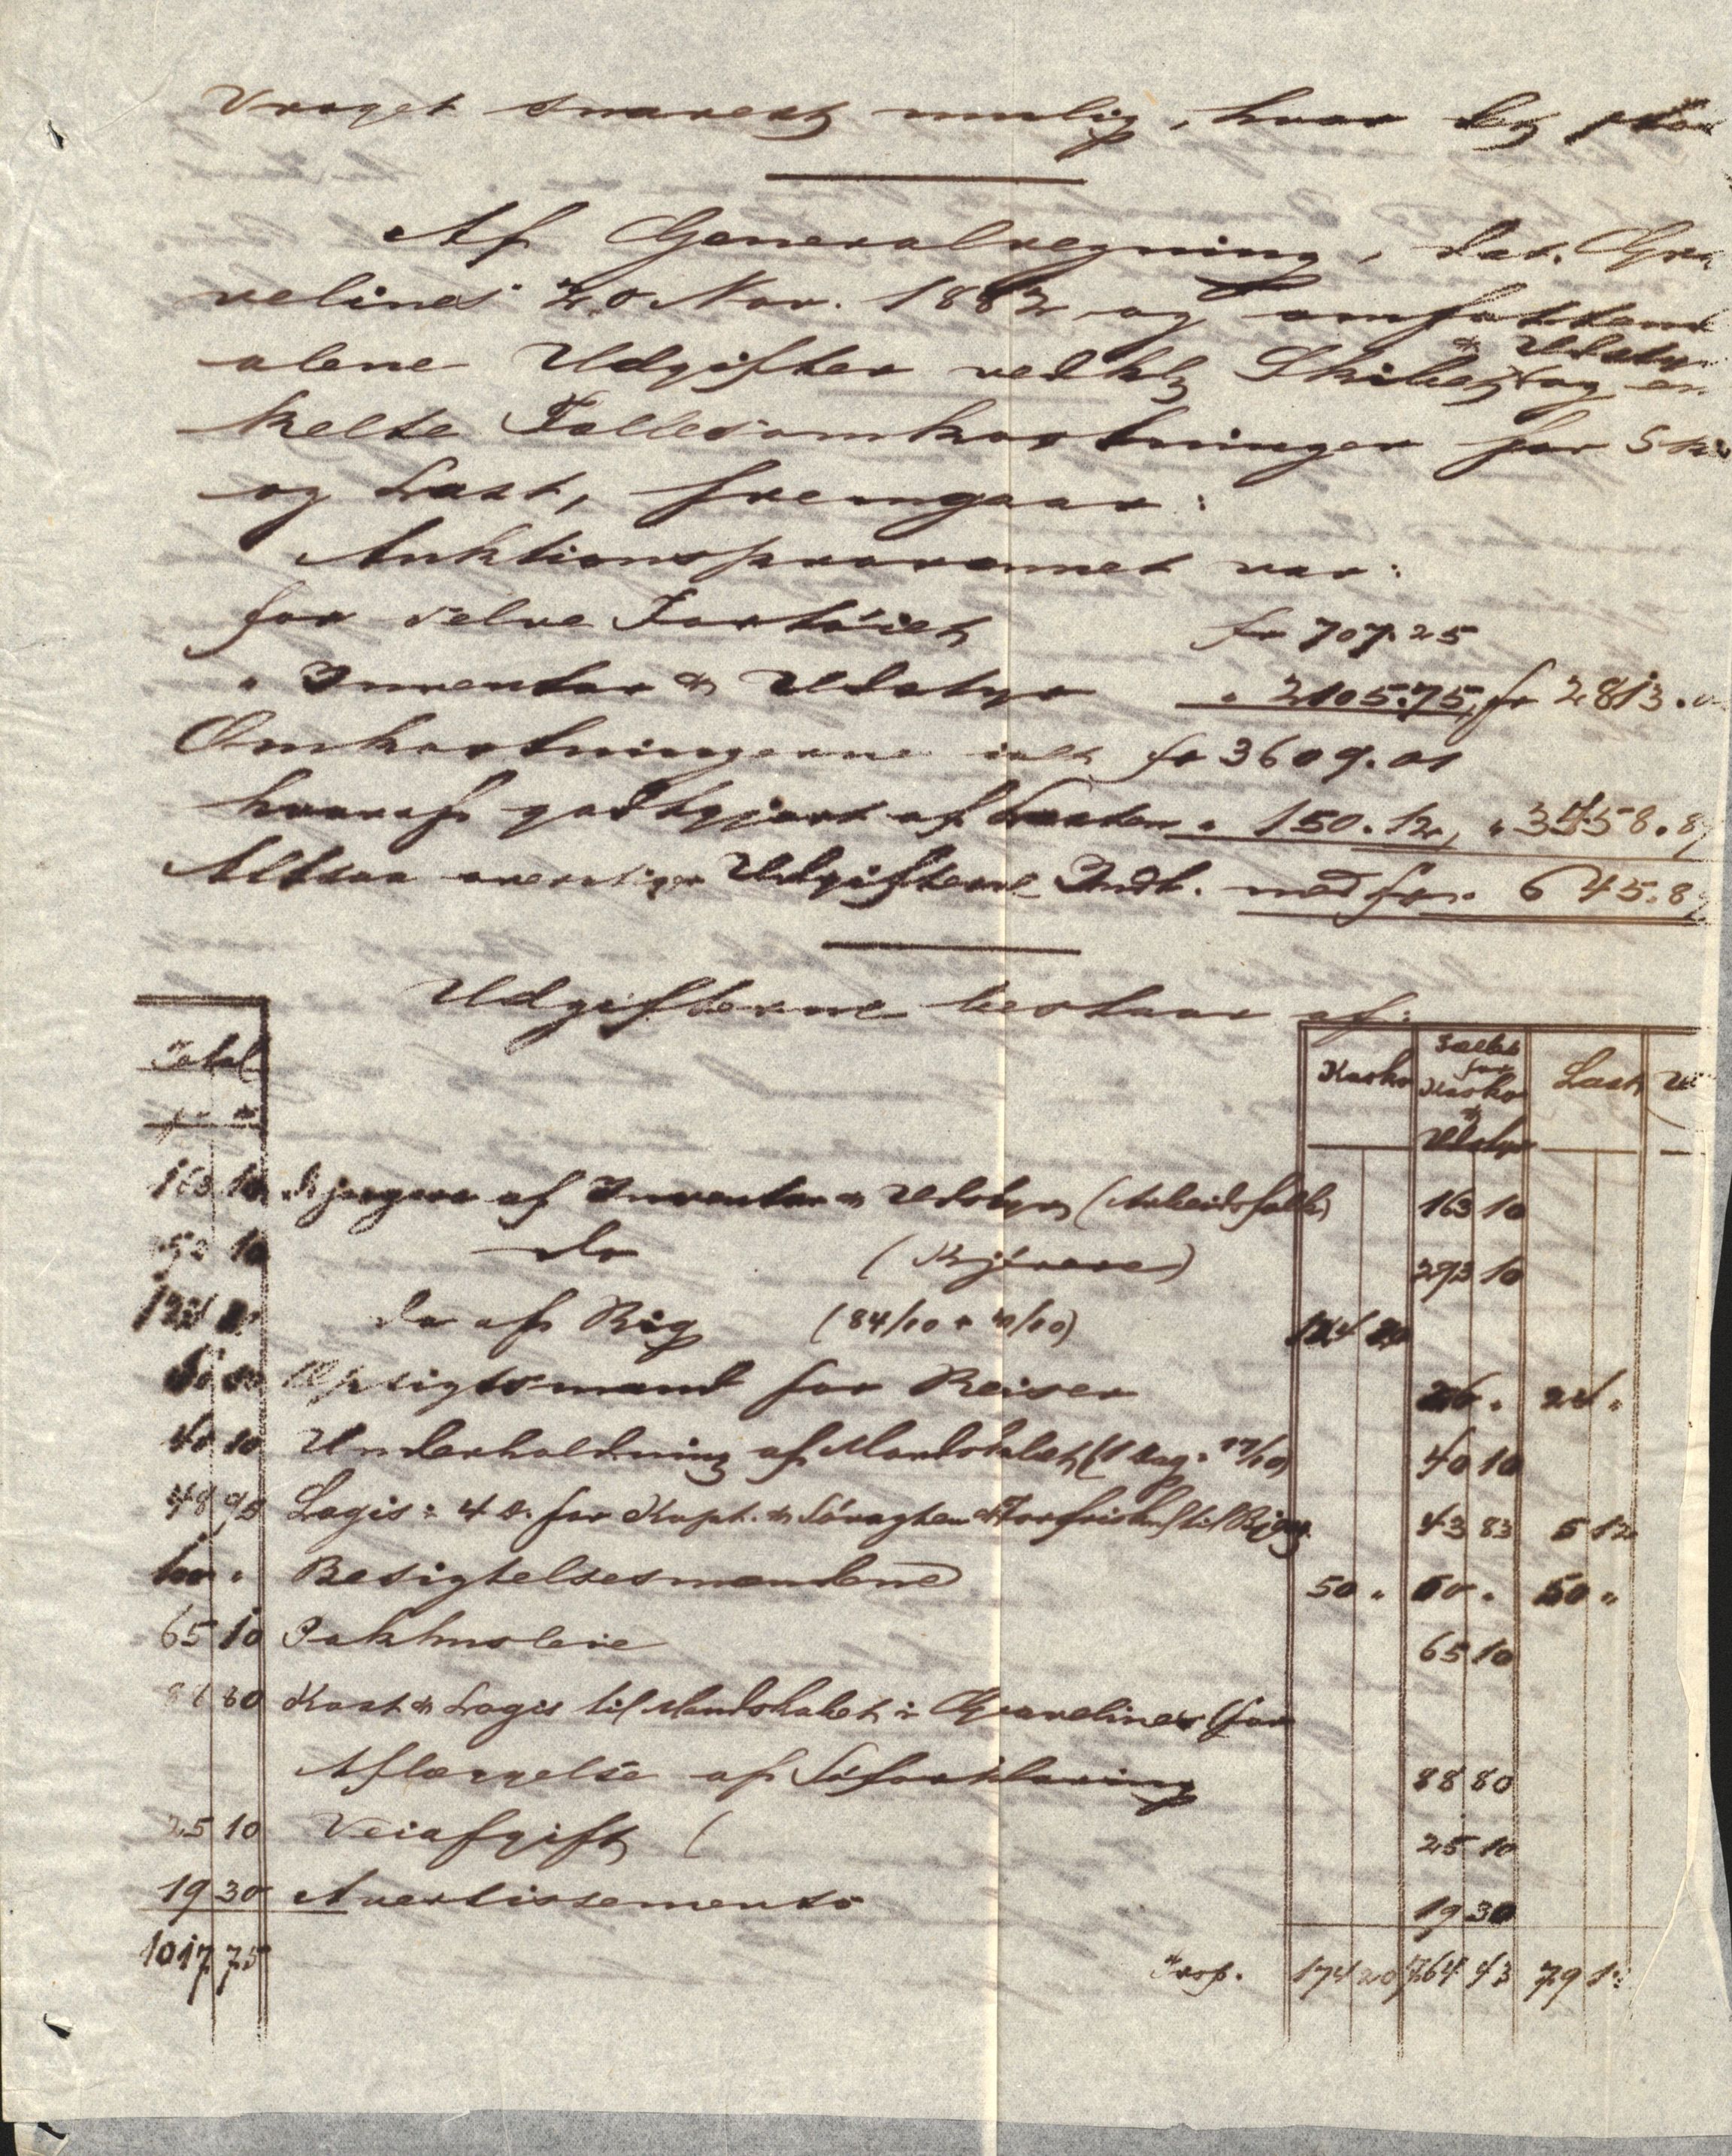 Vraget snarest mulig, hvor det
Af Generalregning, dat. Gra
velines 20 Nov. 1882 og omfattend
& Udsty
alene Udgifter vedkk Skibet og en
kelte Fællesomkostninger for Ski
og Last, fremgaar:
Auktionsprovenuet var:
for selve Fartøiet fr 707.25
" Inventar & Udstyr " 2105.75, fr 2813.
Omkostningerne ialt fr 3609.01
hvoraf godtgjort af Lasten " 150.12, " 3458.8
Altsaa overstiger Udgifterne Indt. med fr. 645.8
Udgifterne bestaar af:
Total Kasko Fælles for Kasko & Udstyr Last
163 10 Bjergere af Inventar & Udstyr (Arbeidsfolk) 163 10
10 do (Kjørere) 293 10
124 20 do af Rig (84/10 + 40/10) 124 20
50 Opsigtsmand for Reiser 26 " 24 "
40 10 Underholdning af Mandskabet (1 Dag = 17/10) 40 10
48 95 Logis = 4 D. for Kapt. & Søvagten & Forfriskn. til Bjerg. 43 83 5 12
" Besigtelsesmændene 50 " 50 " 50 "
65 10 Pakhusleie 65 10
88 80 Kost & Logis til Mandskabet i Gravelines (for
Aflæggelse af Søforklaring 88 80
25 10 Veiafgift ( 25 10
19 30 Avertissements 19 30
1017 75 Trsp. 174 20 764 43 79 1